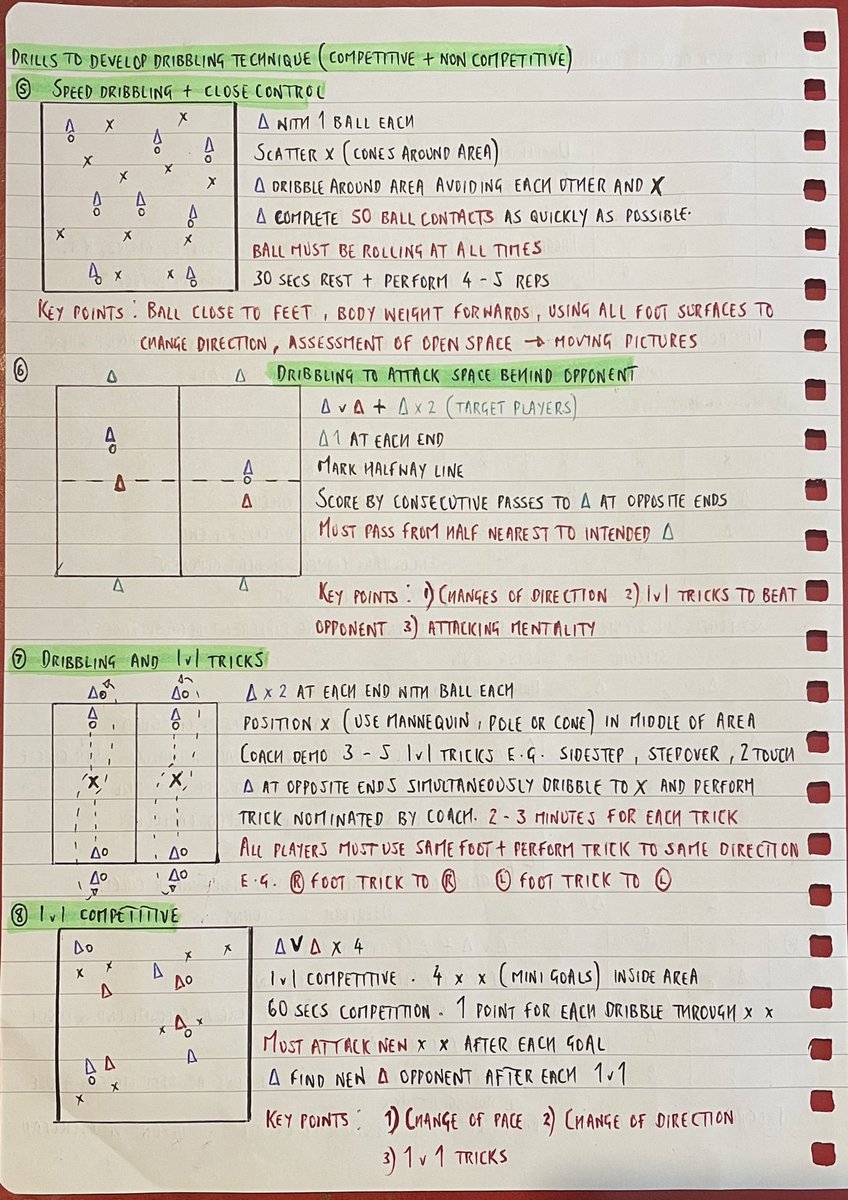 DRILLS TO DEVELOP DRIBBLING TECHNIQUE (COMPETITIVE + NON COMPETITIVE)
⑤ SPEED DRIBBLING + CLOSE CONTROL
Δ WITH 1 BALL EACH
SCATTER X (CONES AROUND AREA)
Δ DRIBBLE AROUND AREA AVOIDING EACH OTHER AND X
Δ COMPLETE 50 BALL CONTACTS AS QUICKLY AS POSSIBLE.
BALL MUST BE ROLLING AT ALL TIMES
30 SECS REST + PERFORM 4 - 5 REPS
KEY POINTS : BALL CLOSE TO FEET , BODY WEIGHT FORWARDS , USING ALL FOOT SURFACES TO
CHANGE DIRECTION , ASSESSMENT OF OPEN SPACE → MOVING PICTURES
⑥ DRIBBLING TO ATTACK SPACE BEHIND OPPONENT
Δ v Δ + Δ x 2 (TARGET PLAYERS)
Δ 1 AT EACH END
MARK HALFWAY LINE
SCORE BY CONSECUTIVE PASSES TO Δ AT OPPOSITE ENDS
MUST PASS FROM HALF NEAREST TO INTENDED Δ
KEY POINTS : 1) CHANGES OF DIRECTION 2) 1v1 TRICKS TO BEAT
OPPONENT 3) ATTACKING MENTALITY
⑦ DRIBBLING AND 1v1 TRICKS
Δ x 2 AT EACH END WITH BALL EACH
POSITION X (USE MANNEQUIN , POLE OR CONE) IN MIDDLE OF AREA
COACH DEMO 3 - 5 1v1 TRICKS E.G. SIDESTEP , STEPOVER , 2 TOUCH
Δ AT OPPOSITE ENDS SIMULTANEOUSLY DRIBBLE TO X AND PERFORM
TRICK NOMINATED BY COACH. 2 - 3 MINUTES FOR EACH TRICK
ALL PLAYERS MUST USE SAME FOOT + PERFORM TRICK TO SAME DIRECTION
E.G. Ⓡ FOOT TRICK TO Ⓡ Ⓛ FOOT TRICK TO Ⓛ
⑧ 1v1 COMPETITIVE
Δ V Δ X 4
1v1 COMPETITIVE . 4 x x (MINI GOALS) INSIDE AREA
60 SECS COMPETITION . 1 POINT FOR EACH DRIBBLE THROUGH X X
MUST ATTACK NEW X X AFTER EACH GOAL
Δ FIND NEW Δ OPPONENT AFTER EACH 1v1
KEY POINTS : 1) CHANGE OF PACE 2) CHANGE OF DIRECTION
3) 1 v 1 TRICKS